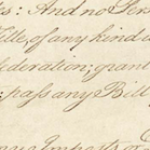 : And no Pers
Title, of any kind
federation; grant
; pass any Bill
Imposts or